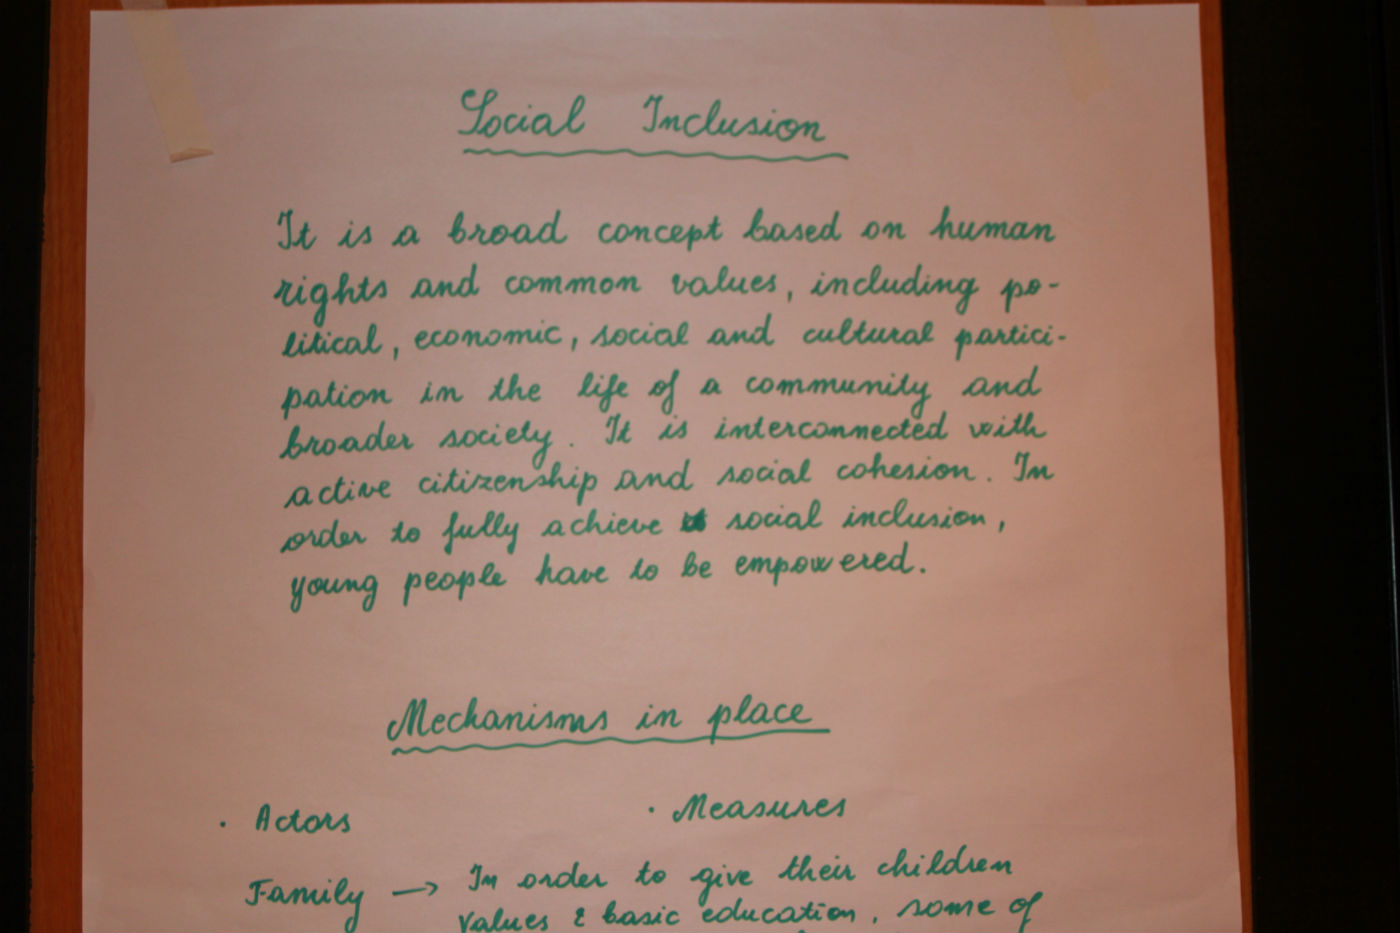 Social Inclusion
It is a broad concept based on human
rights and common values, including po-
litical, economic, social and cultural partici-
pation in the life of a community and
broader society. It is interconnected with
active citizenship and social cohesion. In
order to fully achieve social inclusion,
young people have to be empowered.
Mechanisms in place
· Actors · Measures
Family → In order to give their children
values & basic education, some of